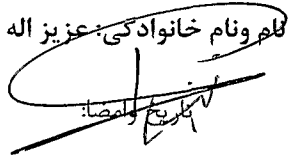 نام ونام خانوادگی: عزیز اله
تاریخ وامضا: